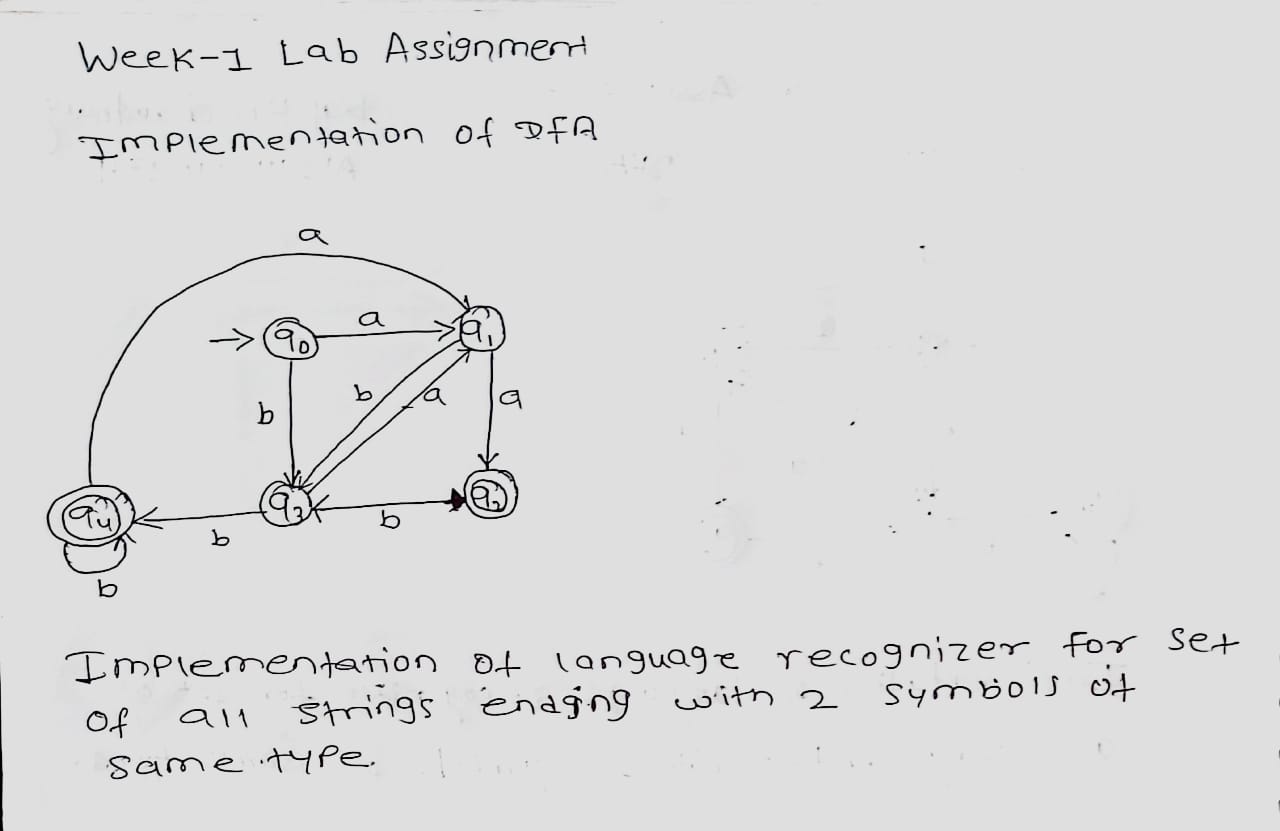 Week-1 Lab Assignment
Implementation of DFA
a
→ q0 a q1
b b a a
q4 q3 b q2
b
b
Implementation of language recognizer for set
of all strings ending with 2 symbols of
same type.